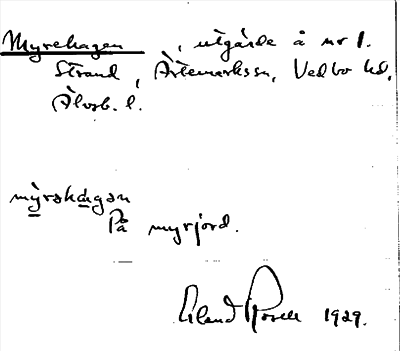 Myrehagen , utgärde å nr 1.
Strand, Ärtemarks sn, Vedbo hd,
Älvsb. l.
mỳrəhàgən
På myrjord.
Erland Rosell 1929.